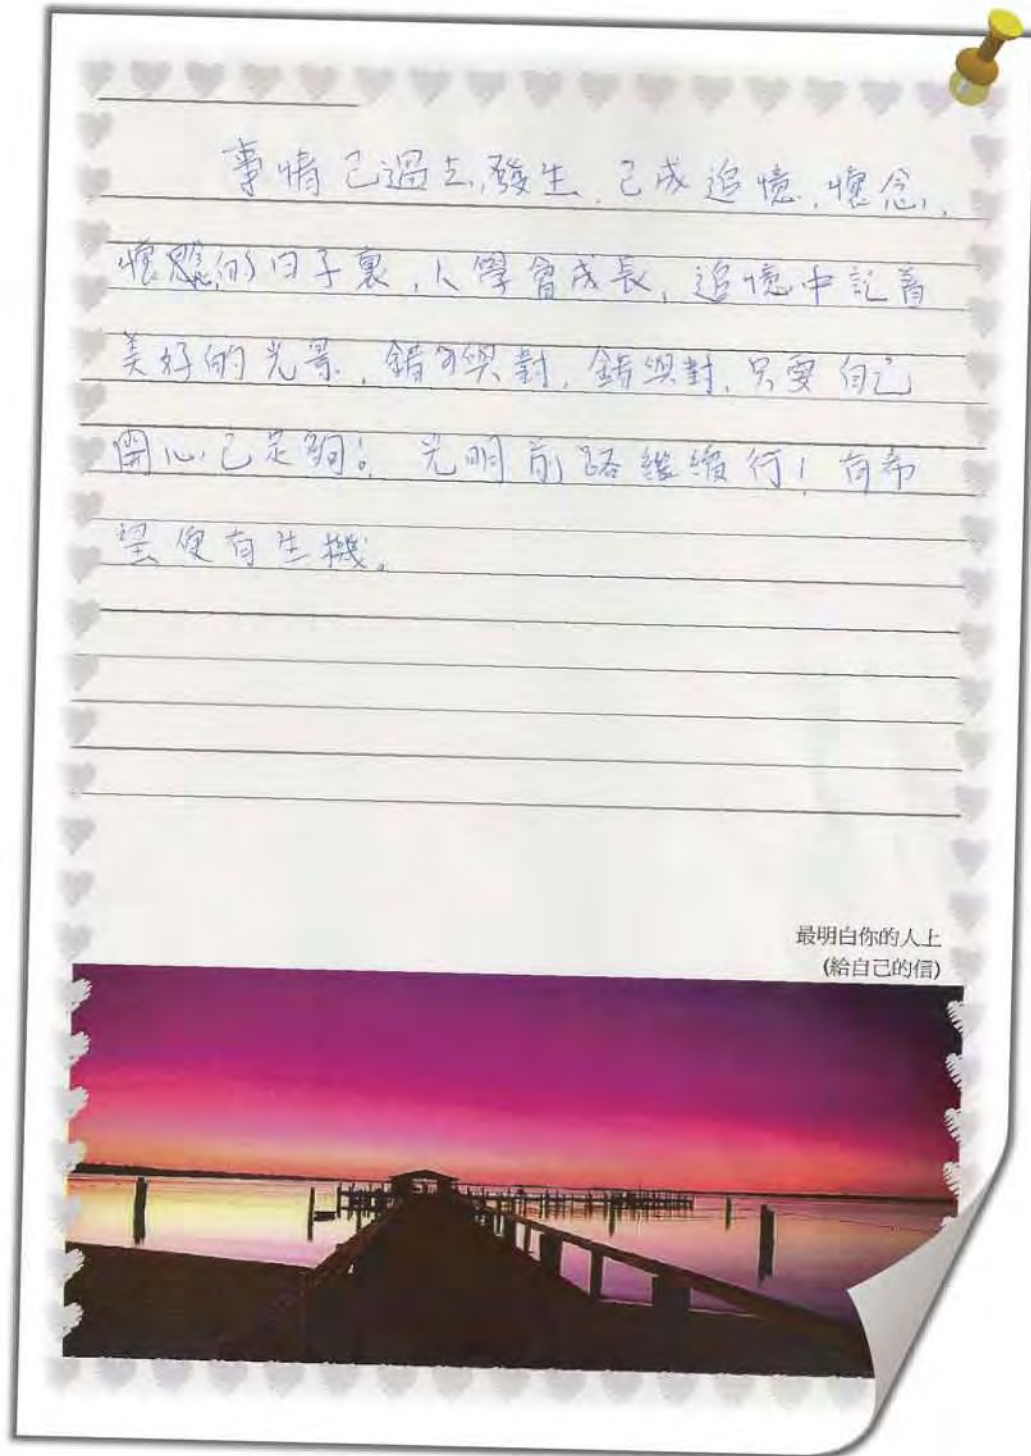 事情已過去,發生,已成追憶,懷念,
懷念的日子裏,人學會成長,追憶中記着
美好的光景,錯與對,錯與對,只要自己
開心已足夠!光明前路繼續行!有希
望便有生機。
最明白你的人上
(給自己的信)